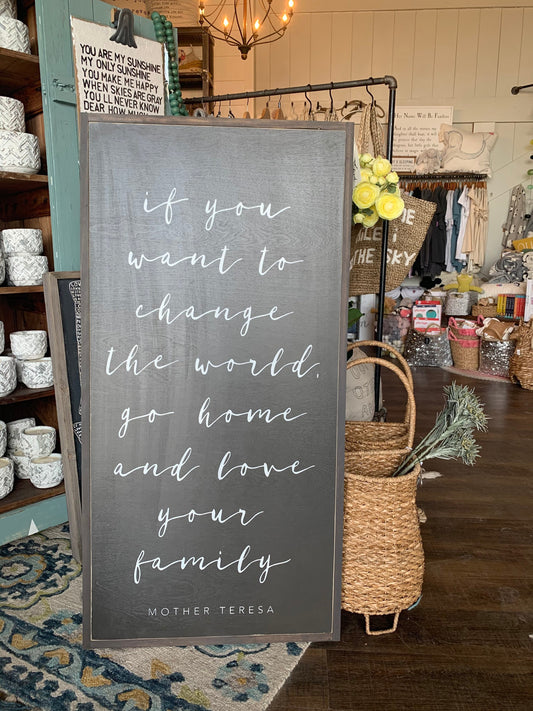 YOU ARE MY SUNSHINE
MY ONLY SUNSHINE
YOU MAKE ME HAPPY
WHEN SKIES ARE GRAY
YOU'LL NEVER KNOW
DEAR HOW
if you
want to
change
the world,
go home
and love
your
family
MOTHER TERESA
THE SKY